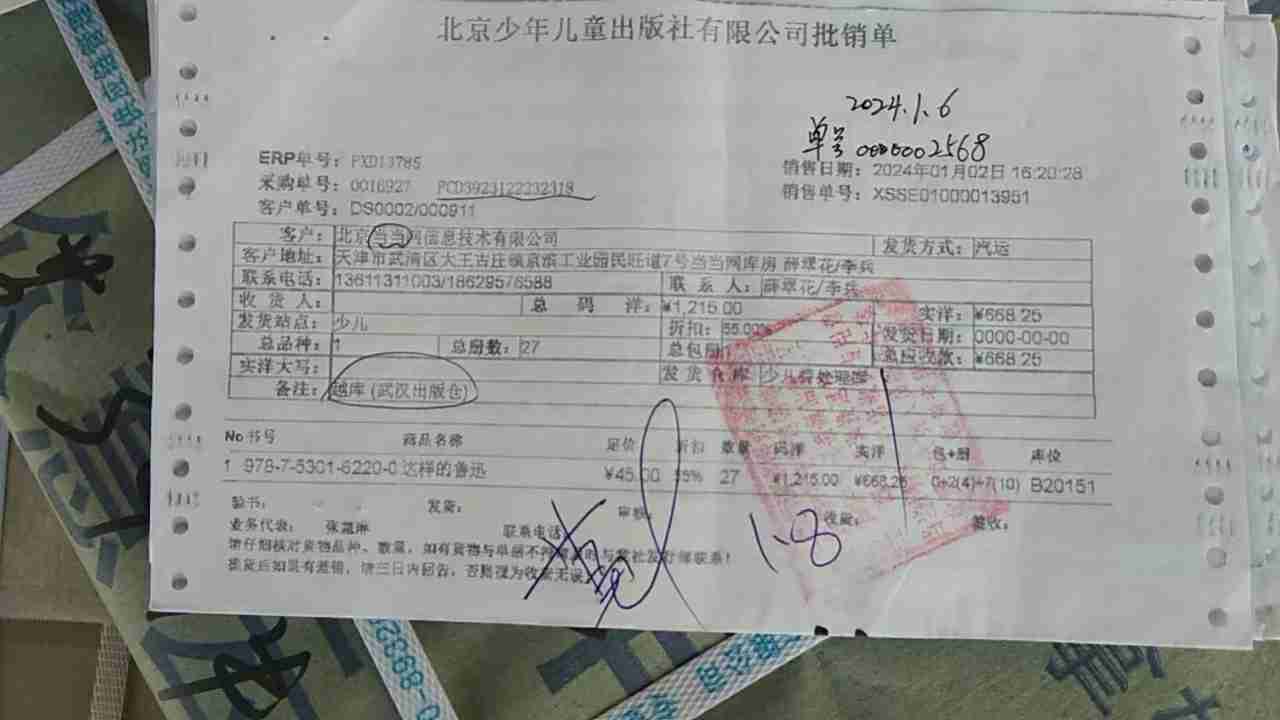 北京少年儿童出版社有限公司批销单
2024.1.6
单号 0000002568
ERP单号: PXD13785
采购单号: 0016927 PCD3923122232318
客户单号: DS0002/000911
销售日期: 2024年01月02日 16:20:28
销售单号: XSSE01000013951
客户: 北京当当网信息技术有限公司 发货方式: 汽运
客户地址: 天津市武清区大王古庄镇京滨工业园民旺道7号当当网库房 薛翠花/李兵
联系电话: 13611311003/18629576588 联系人: 薛翠花/李兵
收货人: 总码洋: ¥1,215.00 实洋: ¥668.25
发货站点: 少儿 折扣: 55.00% 发货日期: 0000-00-00
总品种: 1 总册数: 27 总包册 ¥668.25
实洋大写: 发货仓库 少儿
备注: 越库 (武汉出版仓)
No 书号 商品名称 定价 折扣 数量 码洋 实洋 包+册 库位
1 978-7-5301-6220-0 这样的鲁迅 ¥45.00 55% 27 ¥1,215.00 ¥668.25 0+2(4)+7(10) B20151
验书: 发货: 审核: 收货: 签收:
业务代表: 联系电话
请仔细核对货物品种、数量, 如有货物与单据不符请及时与我社发行部联系!
提货后如果有差错, 请三日内回告, 否则视为收货无误
1.8